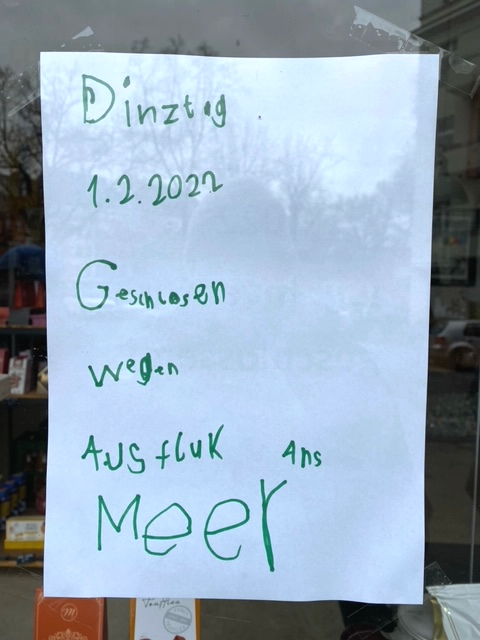 Dinztag
1.2.2022
Geschlosen
wegen
AUSflUK Ans
Meer